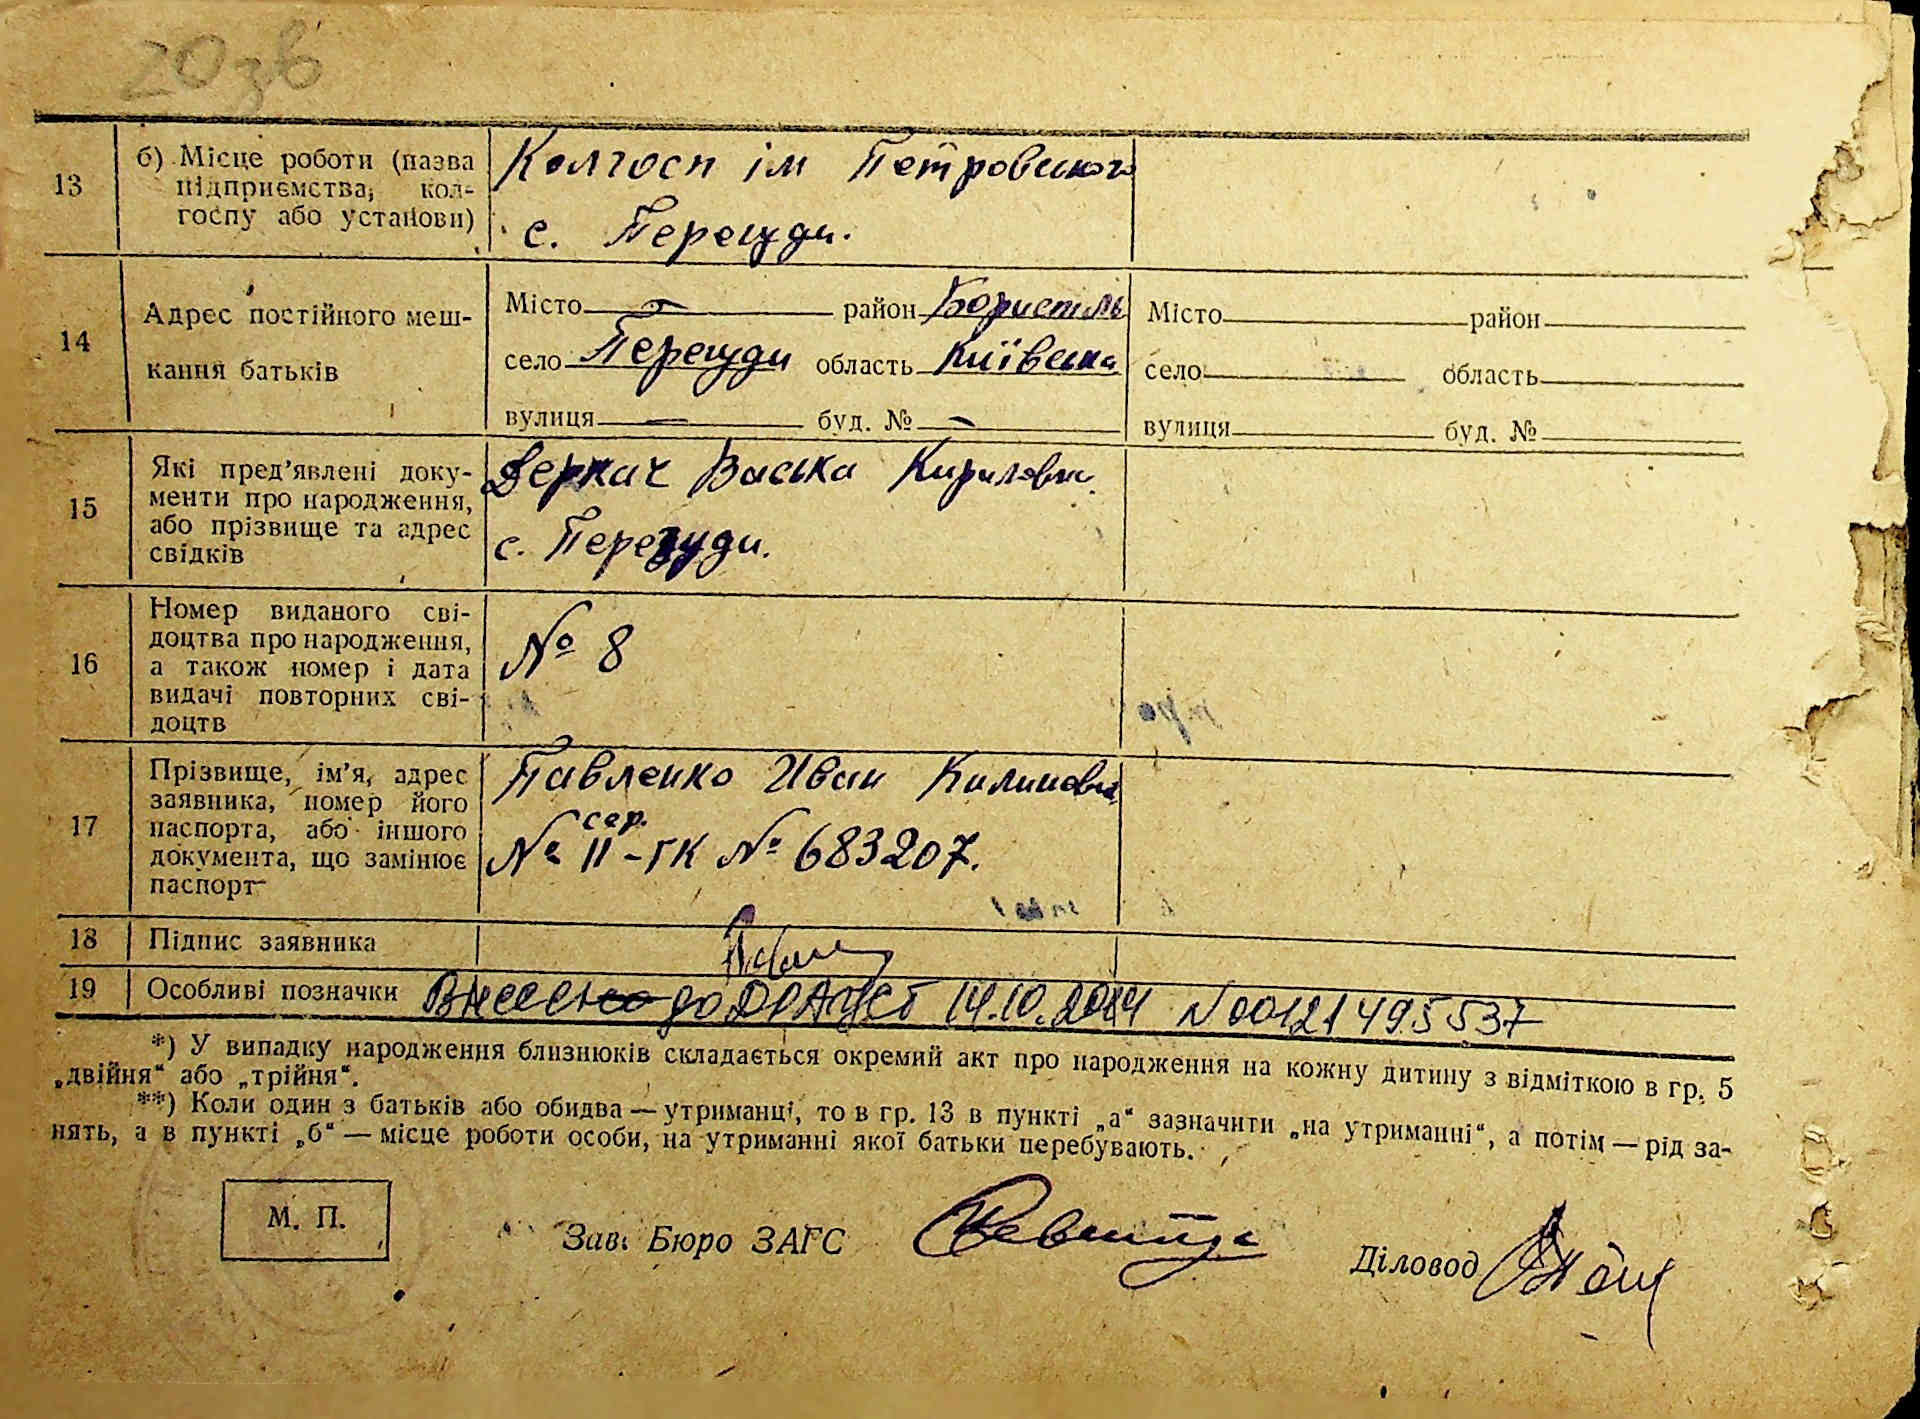 20зв
13
б) Місце роботи (назва
підприємства, кол-
госпу або установи)
Колгосп ім Петровського
с. Перегуди.
14
Адрес постійного меш-
кання батьків
Місто — район Бориспіль
село Перегуди область Київська
вулиця — буд. № —
Місто район
село область
вулиця буд. №
15
Які пред’явлені доку-
менти про народження,
або прізвище та адрес
свідків
Деркач Васька Кирилови.
с. Перегуди.
16
Номер виданого сві-
доцтва про народження,
а також номер і дата
видачі повторних сві-
доцтв
№ 8
17
Прізвище, ім’я, адрес
заявника, номер його
паспорта, або іншого
документа, що замінює
паспорт
Павленко Иван
сер.
№ II-ГК № 683207.
18
Підпис заявника
19
Особливі позначки
Внесено до ДРАЦСГ 14.10.2014 N 00121495537
*) У випадку народження близнюків складається окремий акт про народження на кожну дитину з відміткою в гр. 5
„двійня“ або „трійня“.
**) Коли один з батьків або обидва — утриманці, то в гр. 13 в пункті „а“ зазначити „на утриманні“, а потім — рід за-
нять, а в пункті „б“ — місце роботи особи, на утриманні якої батьки перебувають.
М. П.
Зав. Бюро ЗАГС
Діловод